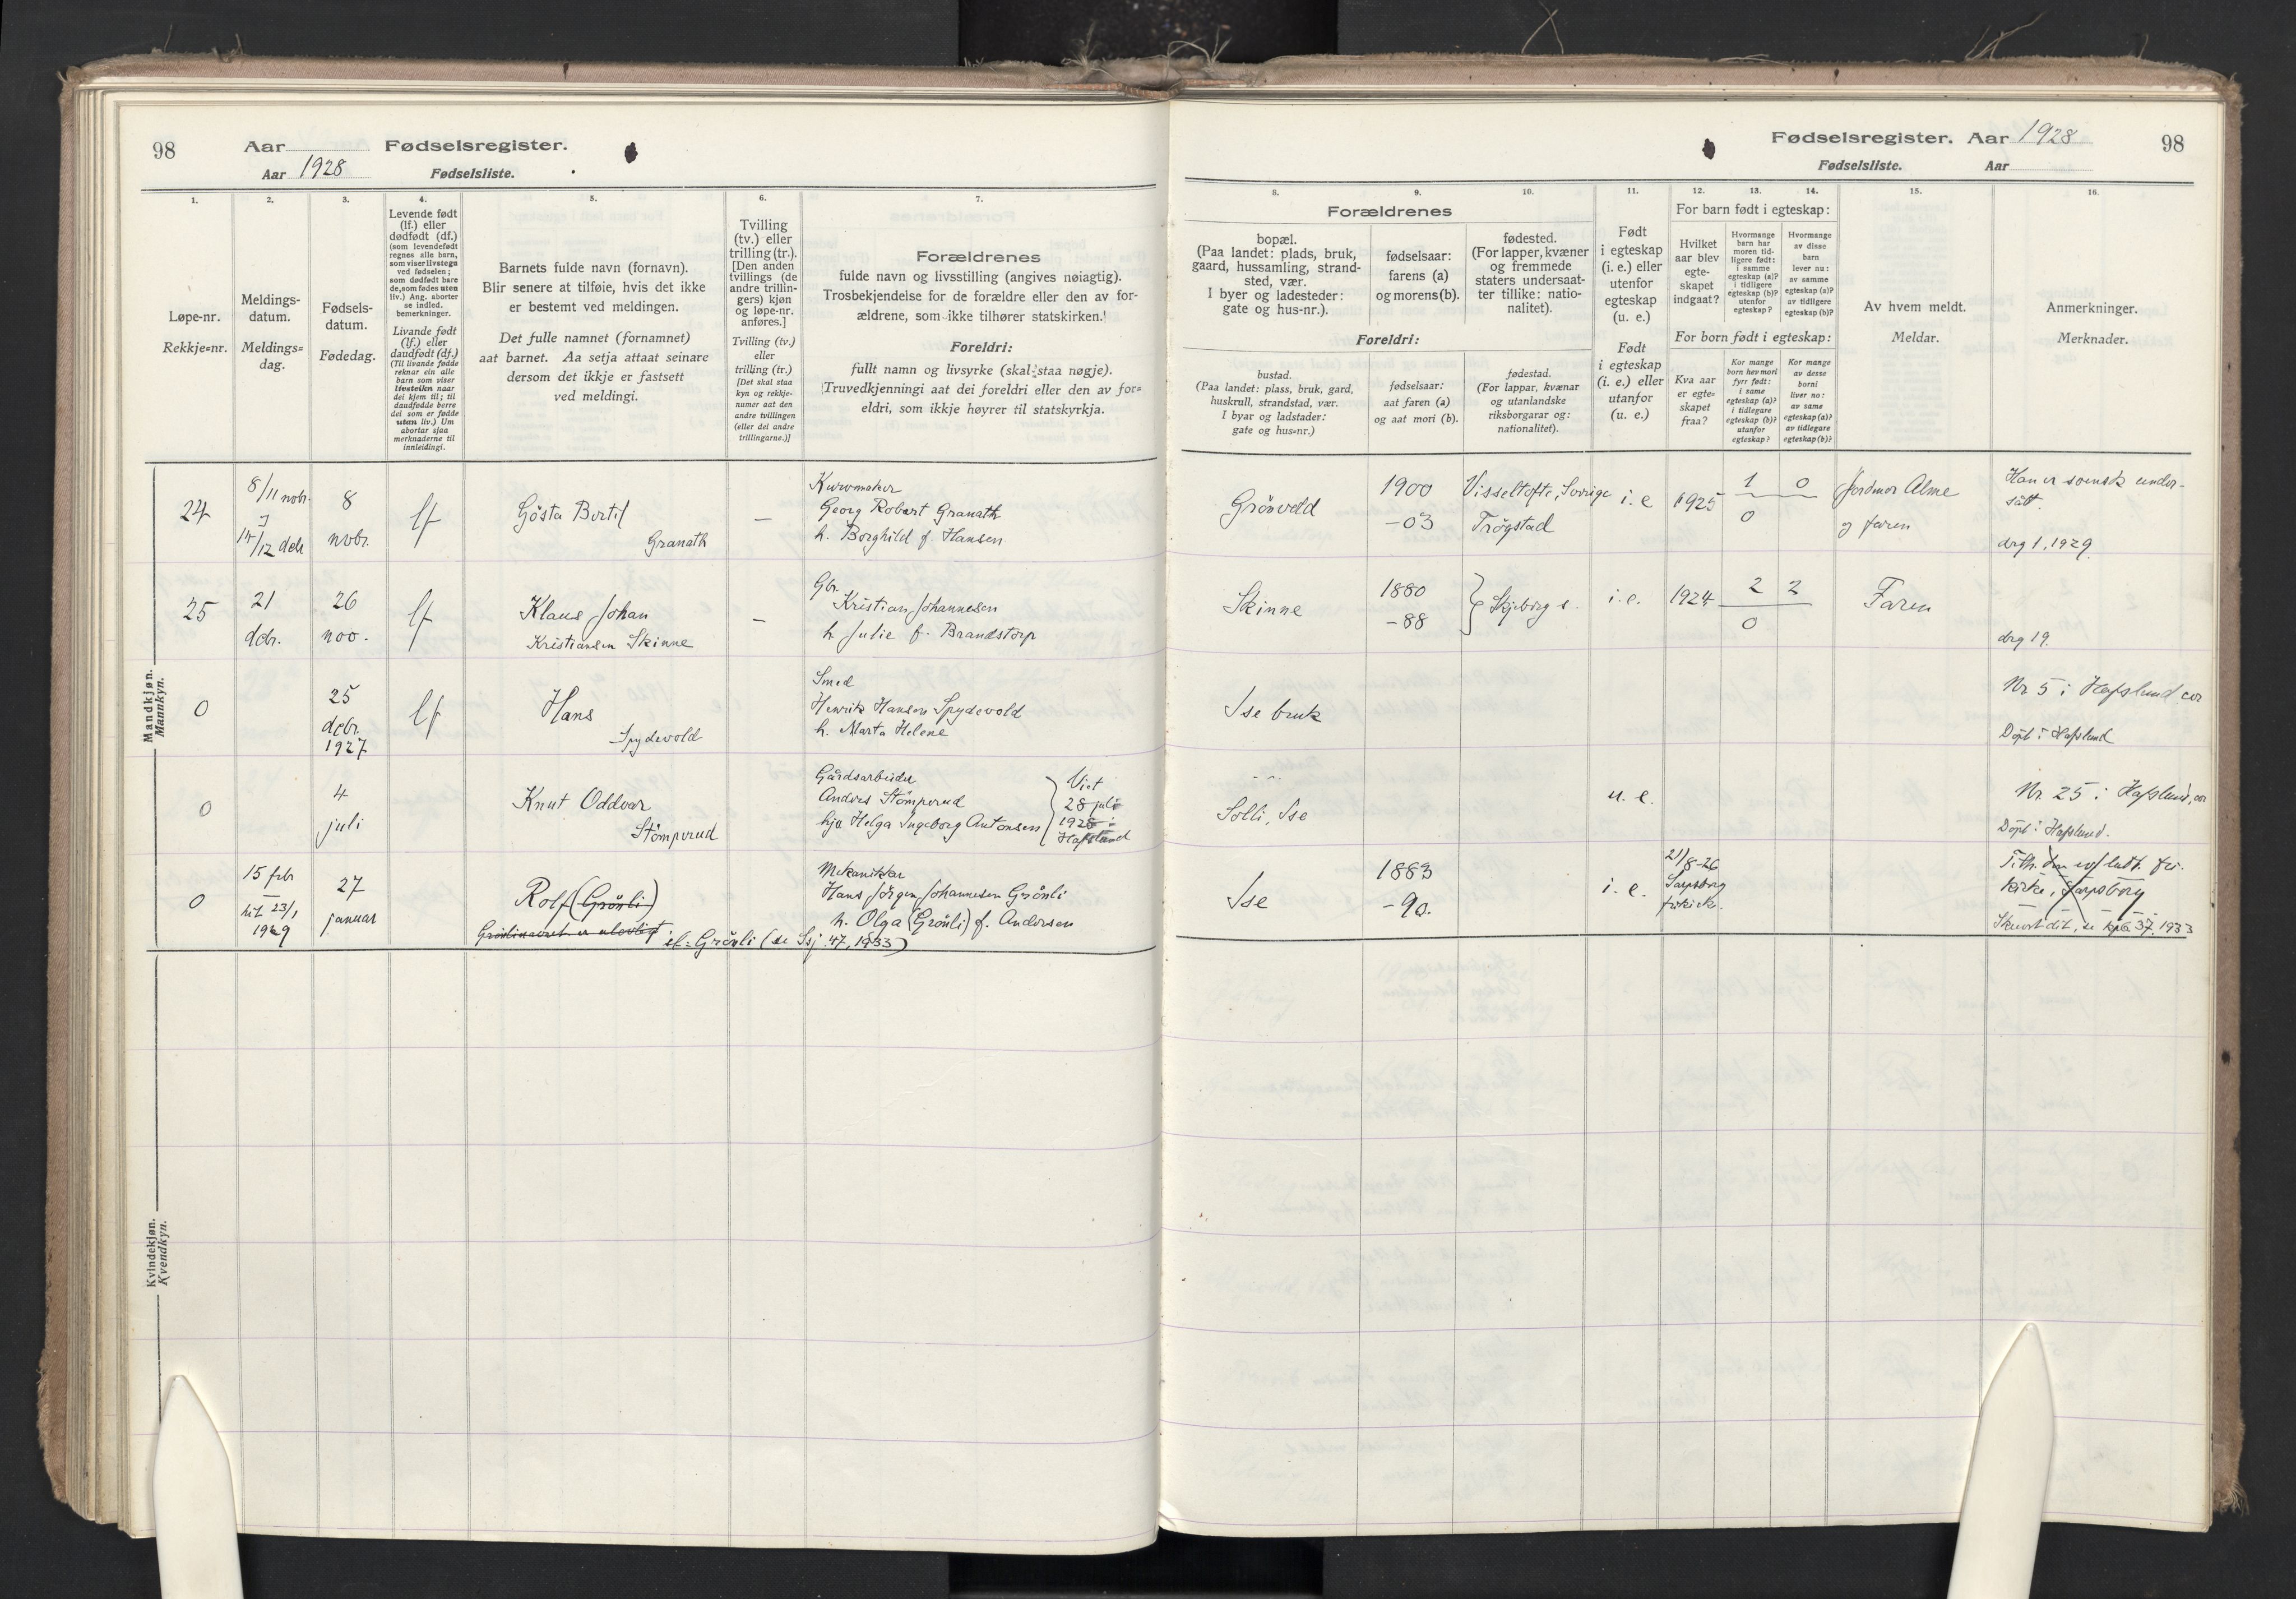 98
Aar
Fødselsregister.
Aar 1928
Fødselsliste.
1.
2.
3.
4.
5.
6.
7.
Løpe-nr.
Rekkje=nr.
Meldings-
datum.
Meldings=
dag.
Fødsels-
datum.
Fødedag.
Levende født
(lf.) eller
dødfødt (df.)
(som levendefødt
regnes alle barn,
som viser livstegn
ved fødselen;
som dødfødt bare
de, som fødes uten
liv.) Ang. aborter
se indled.
bemerkninger.
Livande født
(lf.) eller
daudfødt (df.)
(Til livande fødde
reknar ein alle
barn som viser
livsteikn naar
dei kjem til; til
daudfødde berre
dei som er fødde
utan liv.) Um
abortar sjaa
merknaderne til
innleidingi.
Barnets fulde navn (fornavn).
Blir senere at tilføie, hvis det ikke
er bestemt ved meldingen.
Det fulle namnet (fornamnet)
aat barnet. Aa setja attaat seinare
dersom det ikkje er fastsett
ved meldingi.
Tvilling
(tv.) eller
trilling (tr.).
[Den anden
tvillings (de
andre trillin-
gers) kjøn
og løpe-nr.
anføres.]
Tvilling (tv.)
eller
trilling (tr.)
[Det skal staa
kyn og rekkje-
numer aat den
andre tvillingen
(eller dei andre
trillingarne.)]
Forældrenes
fulde navn og livsstilling (angives nøiagtig).
Trosbekjendelse for de forældre eller den av for-
ældrene, som ikke tilhører statskirken.
Foreldri:
fullt namn og livsyrke (skal staa nøgje).
(Truvedkjenningi aat dei foreldri eller den av for=
eldri, som ikkje høyrer til statskyrkja.
Mandkjøn.
Mannkyn.
24
8/11 nobr.
14/12 dcbr
8
nobr.
lf
Gösta Bertil
Granath
—
Kurvmaker
Georg Robert Granath
h. Borghild f. Hansen
25
21
dcbr.
26
nov.
lf
Klaus Johan
Kristiansen Skinne
—
Gbr.
Kristian Johannesen
h. Julie f. Brandstorp
0
25
dcbr.
1927
lf
Hans
Spydevold
Smed
Henrik Hansen Spydevold
h. Marta Helene
0
4
juli
Knut Oddvar
Stömperud
Gårdsarbeider
Anders Stömperud
hja Helga Ingeborg Antonsen
Viet
28 juli
1928 i
Hafslund
0
15 febr
hit 23/1
1929
27
januar
Rolf (Grönli)
Grönlinavnet er ulovlig
el. Grönli (se Ssj. 47, 1933)
Mekaniker
Hans Jörgen Johannesen Grönli
h. Olga (Grönli) f. Andersen
Kvindekjøn.
Kvendkyn.
Fødselsregister. Aar 1928
98
Fødselsliste.
Aar
8.
9.
10.
11.
12.
13.
14.
15.
16.
Forældrenes
bopæl.
(Paa landet: plads, bruk,
gaard, hussamling, strand-
sted, vær.
I byer og ladesteder:
gate og hus-nr.).
fødselsaar:
farens (a)
og morens (b).
fødested.
(For lapper, kvæner
og fremmede
staters undersaat-
ter tillike: natio-
nalitet).
Foreldri:
bustad.
(Paa landet: plass, bruk, gard,
huskrull, strandstad, vær.
I byar og ladstader:
gate og hus=nr.)
fødselsaar:
aat faren (a)
og aat mori (b).
fødestad.
(For lappar, kvænar
og utanlandske
riksborgarar og:
nationalitet).
Født
i egteskap
(i. e.) eller
utenfor
egteskap
(u. e.)
Født
i egteskap
(i. e.) eller
utanfor
(u. e.)
For barn født i egteskap:
Hvilket
aar blev
egte-
skapet
indgaat?
Hvormange
barn har
moren tid-
ligere født:
i samme
egteskap (a)?
i tidligere
egteskap (b)?
utenfor
egteskap?
Hvormange
av disse
barn
lever nu:
av samme
egteskap (a)?
av tidligere
egteskap (b)?
For born født i egteskap:
Kva aar
er egte=
skapet
fraa?
Kor mange
born hev mori
fyrr født:
i same
egteskap (a)?
i tidlegare
egteskap (b)?
utanfor
egteskap?
Kor mange
av desse
borni
liver no:
av same
egteskap (a)?
av tidlegare
egteskap (b)?
Av hvem meldt.
Meldar.
Anmerkninger.
Merknader.
Grönvold
1900
-03
Visseltofte, Sverige
Trögstad
i. e
1925
1 0
0
Jordmor Alme
og faren
Han er svensk under-
sått.
drg 1, 1929
Skinne
1880
-88
Skjeberg s.
i. e.
1924
2 2
0
Faren
drg 19.
Ise bruk
Nr 5 i Hafslund
Döpt i Hafslund
Solli, Ise
u. e.
Nr. 25 i Hafslund,
Döpt i Hafslund.
Ise
1883
-90.
i. e.
21/8-26
Sarpsborg
frikirk.
Tilh. den ev. luth. fri-
kirke, Sarpsborg
37, 1933